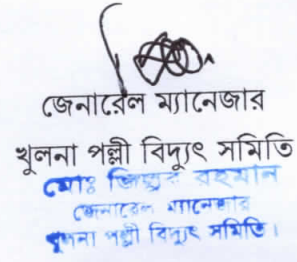 জেনারেল ম্যানেজার
খুলনা পল্লী বিদ্যুৎ সমিতি
মোঃ জিল্লুর রহমান
জেনারেল ম্যানেজার
খুলনা পল্লী বিদ্যুৎ সমিতি।